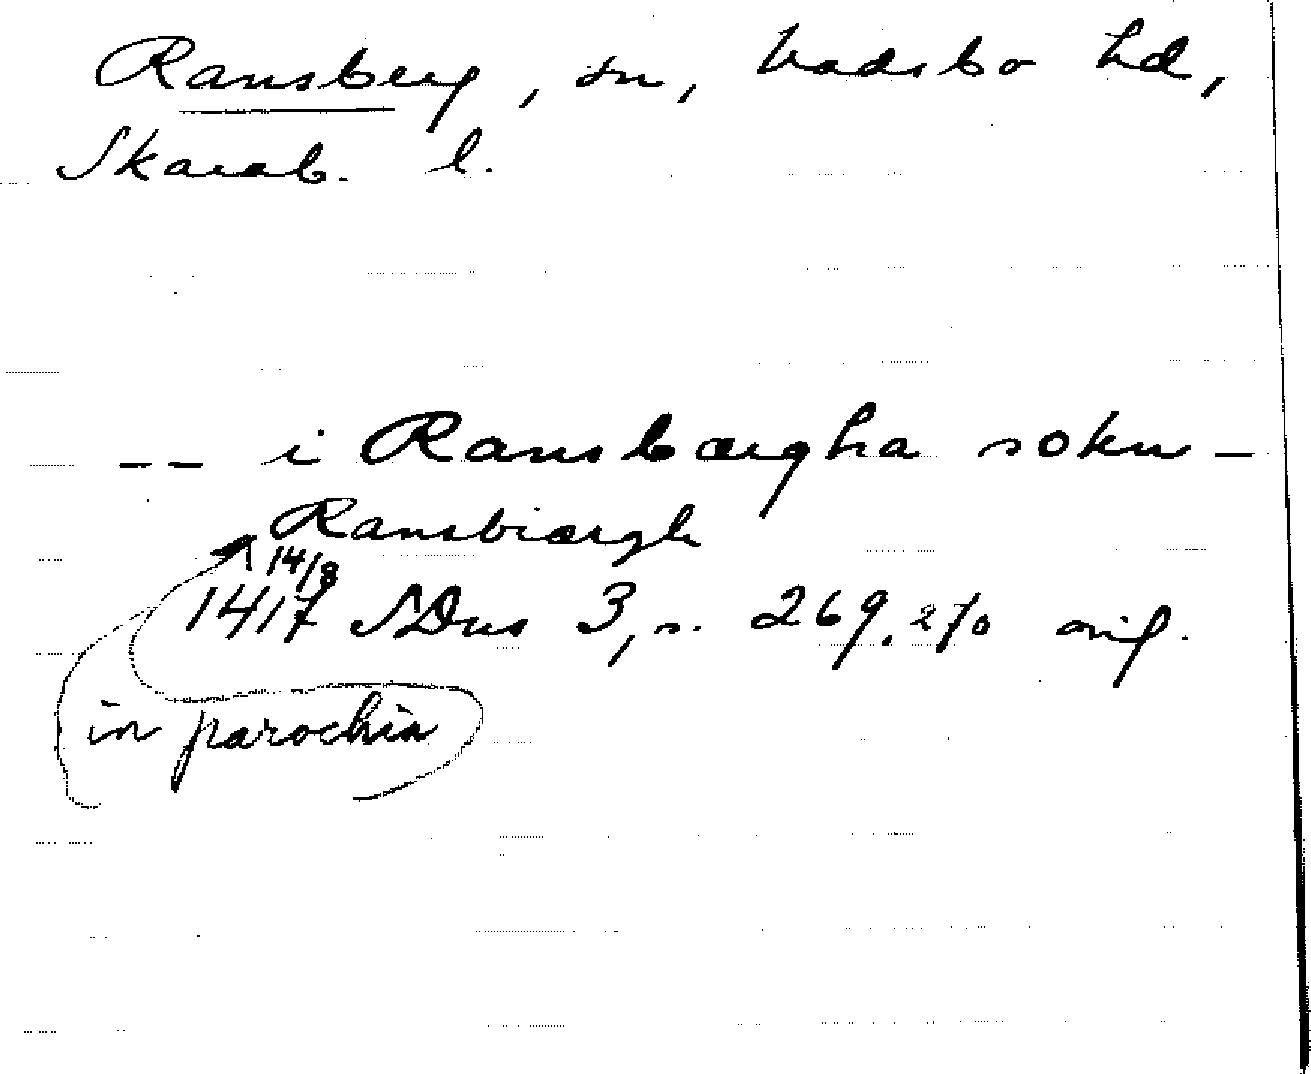 Ransberg, sn, Vadsbo hd,
Skarab. l.
-- i Ransbærgha sokn -
Ransbiærgh
14/8
1417 SDns 3, s. 269, 270 orig.
in parochia